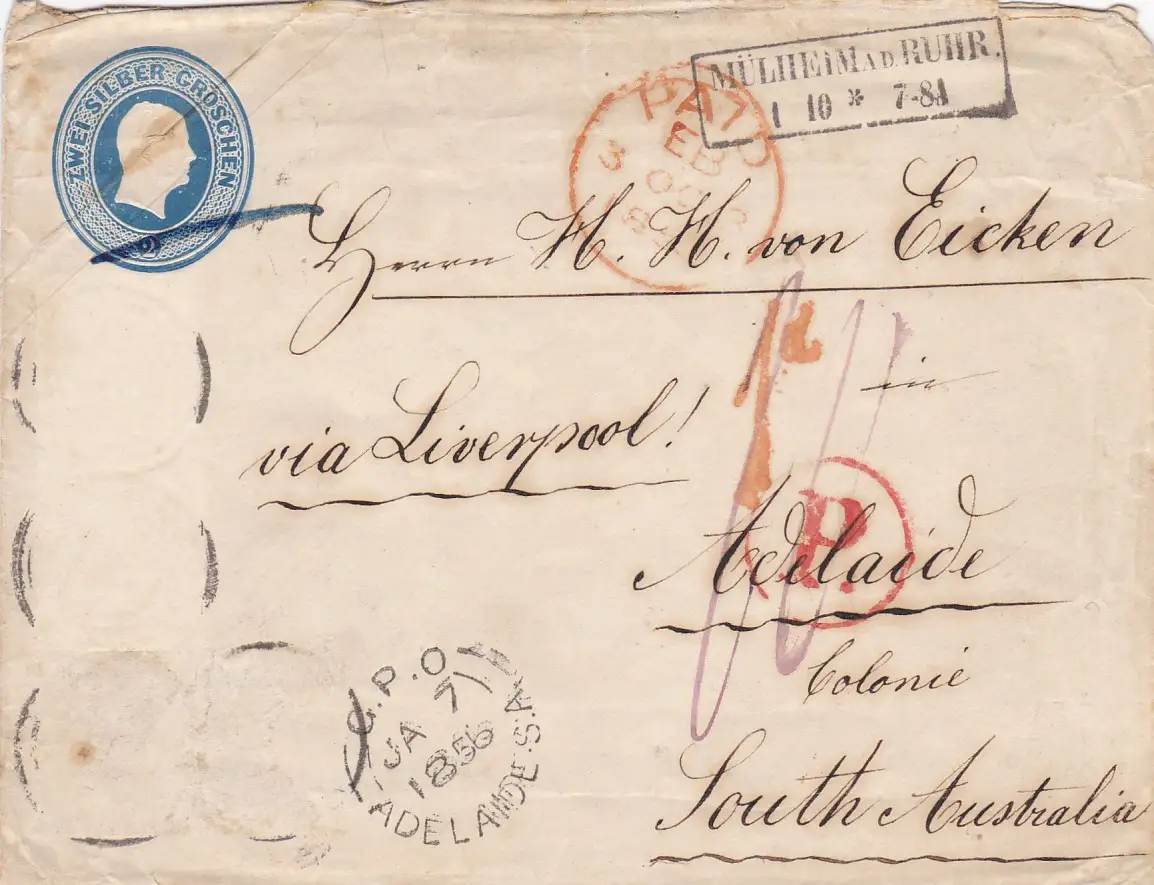 ZWEI SILBER GROSCHEN
2
MÜLHEIM A D. RUHR.
1 10 * 7-8
PAID
3 OC
Herrn H. H. von Eicken
in
via Liverpool!
P.
Adelaide
Colonie
South Australia
G.P.O
JA 7
1856
ADELAIDE S.A